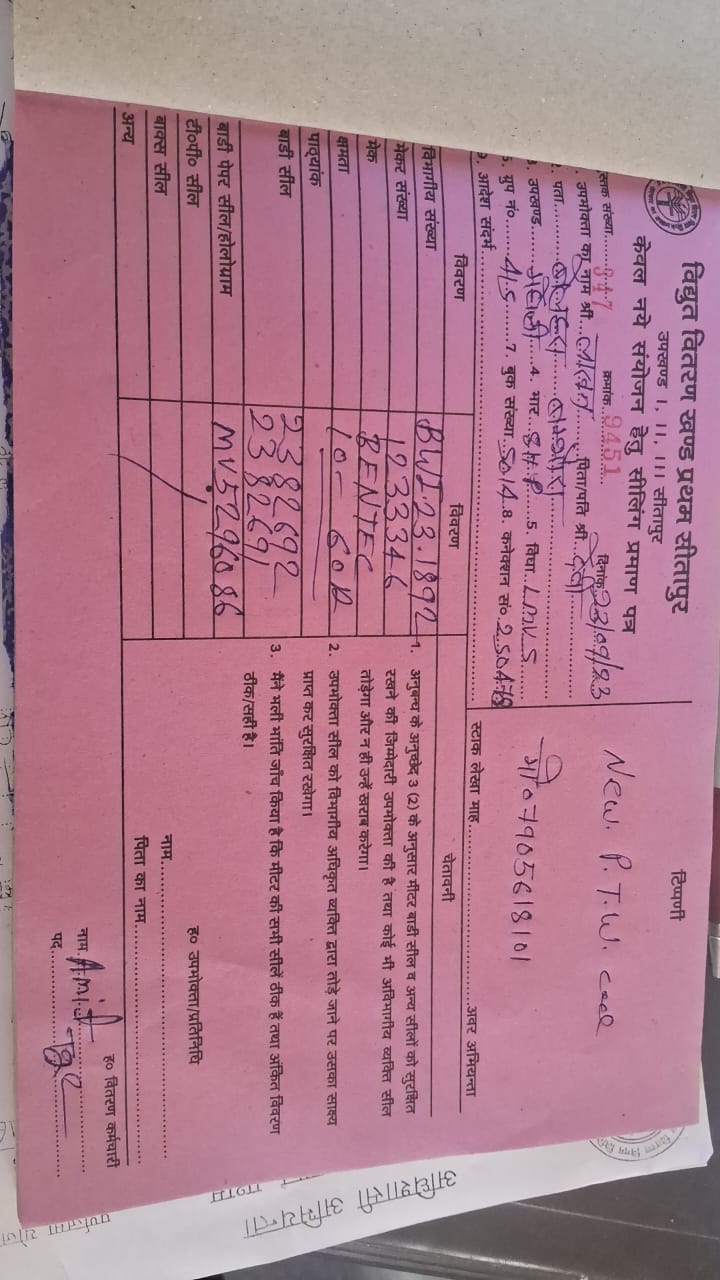 विद्युत वितरण खण्ड प्रथम सीतापुर
उपखण्ड ।, ।।, ।।। सीतापुर
केवल नये संयोजन हेतु सीलिंग प्रमाण पत्र
पुस्तक संख्या.......847 क्रमांक...9451....... दिनांक 23/09/23
1. उपभोक्ता का नाम श्री... पिता/पति श्री...
2. पता.........
3. उपखण्ड...... 4. भार...8H.P...... 5. विधा..LMV.5
6. ग्रुप नं०......A/S........7. बुक संख्या..5014..8. कनेक्शन सं०.250478
9. आदेश संदर्भ
विवरण विवरण
विभागीय संख्या BWI.23.1892
मेकर संख्या 1233346
मेक BENTEC
क्षमता 10-60A
पाठ्यांक
बाडी सील 2382692
2382691
बाडी पेपर सील/होलोग्राम MV5296086
टी०पी० सील
बाक्स सील
अन्य
टिप्पणी
New. P.T.W. Case
मो० 7905618101
स्टाक लेखा माह...........अवर अभियन्ता
चेतावनी
1. अनुबन्ध के अनुच्छेद 3 (2) के अनुसार मीटर बाडी सील व अन्य सीलों को सुरक्षित
रखने की जिम्मेदारी उपभोक्ता की है तथा कोई भी अविभागीय व्यक्ति सील
तोड़ेगा और न ही उन्हें खराब करेगा।
2. उपभोक्ता सील को विभागीय अधिकृत व्यक्ति द्वारा तोड़े जाने पर उसका साक्ष्य
प्राप्त कर सुरक्षित रखेगा।
3. मैंने भली भांति जाँच किया है कि मीटर की सभी सीलें ठीक हैं तथा अंकित विवरण
ठीक/सही है।
ह० उपभोक्ता/प्रतिनिधि
नाम...........
पिता का नाम...........
ह० वितरण कर्मचारी
नाम. Amit
पद...........
अधिशासी अभियन्ता